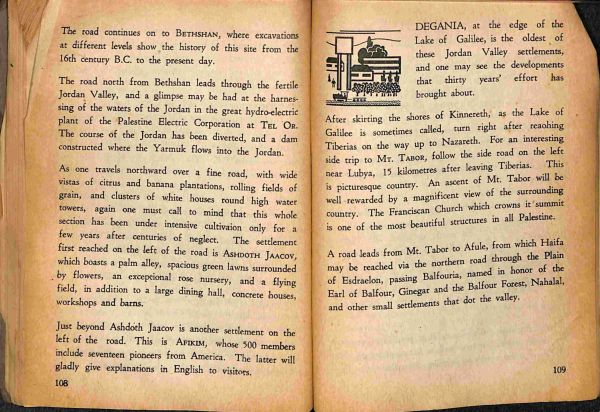 The road continues on to BETHSHAN, where excavations
at different levels show the history of this site from the
16th century B.C. to the present day.
The road north from Bethshan leads through the fertile
Jordan Valley, and a glimpse may be had at the harnes-
sing of the waters of the Jordan in the great hydro-electric
plant of the Palestine Electric Corporation at TEL OR.
The course of the Jordan has been diverted, and a dam
constructed where the Yarmuk flows into the Jordan.
As one travels northward over a fine road, with wide
vistas of citrus and banana plantations, rolling fields of
grain, and clusters of white houses round high water
towers, again one must call to mind that this whole
section has been under intensive cultivaion only for a
few years after centuries of neglect. The settlement
first reached on the left of the road is ASHDOTH JAACOV,
which boasts a palm alley, spacious green lawns surrounded
by flowers, an exceptional rose nursery, and a flying
field, in addition to a large dining hall, concrete houses,
workshops and barns.
Just beyond Ashdoth Jaacov is another settlement on the
left of the road. This is AFIKIM, whose 500 members
include seventeen pioneers from America. The latter will
gladly give explanations in English to visitors.
108
DEGANIA, at the edge of the
Lake of Galilee, is the oldest of
these Jordan Valley settlements,
and one may see the developments
that thirty years' effort has
brought about.
After skirting the shores of Kinnereth, as the Lake of
Galilee is sometimes called, turn right after reaching
Tiberias on the way up to Nazareth. For an interesting
side trip to MT. TABOR, follow the side road on the left
near Lubya, 15 kilometres after leaving Tiberias. This
is picturesque country. An ascent of Mt. Tabor will be
well rewarded by a magnificent view of the surrounding
country. The Franciscan Church which crowns it summit
is one of the most beautiful structures in all Palestine.
A road leads from Mt. Tabor to Afule, from which Haifa
may be reached via the northern road through the Plain
of Esdraelon, passing Balfouria, named in honor of the
Earl of Balfour, Ginegar and the Balfour Forest, Nahalal,
and other small settlements that dot the valley.
109